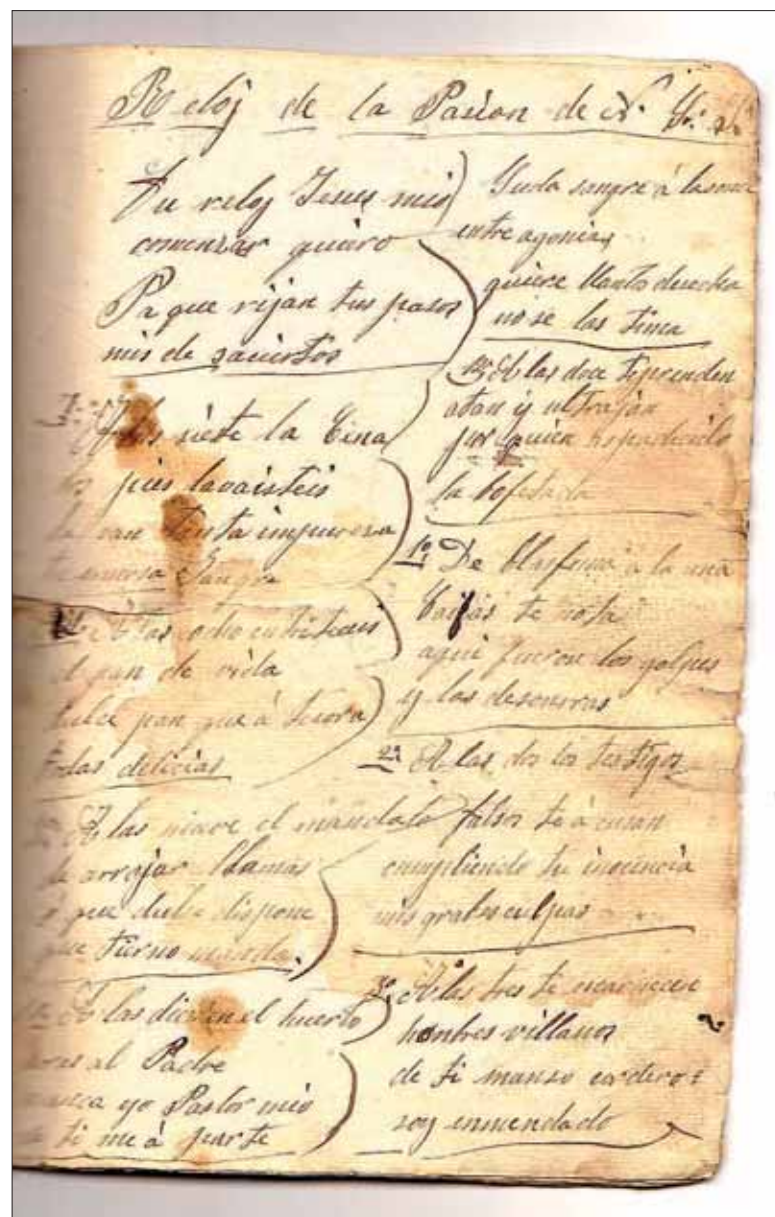 Reloj de la Pasion de N. Sr.
Tu reloj Jesus mio
comenzar quiero
Pa que rijan tus pasos
mis de saciertos
A las siete la Cena
pies lavaisteis
tanta impureza
Sangre
A las ocho
el pan de vida
dulce pan que á
todas delicias
A las nueve el mandato
de arrojar llamas
que dulce dispone
que tierno manda.
A las diez en el huerto
al Padre
nunca yo Pastor mio
de ti me á parte
Suda sangre á las once
entre agonias
quiere llanto
no se las tima
A las doce te prenden
atan y ultrajan
por quien
la bofetada
De blasfemo á la una
Caifas te nota
aqui fueron los golpes
y las desonras
2ª A las dos los testigos
falsos te á cusan
cumpliendo tu inocencia
mis graves culpas
3ª A las tres te escarnecen
hombres villanos
de ti manso cordero
soy enmendado